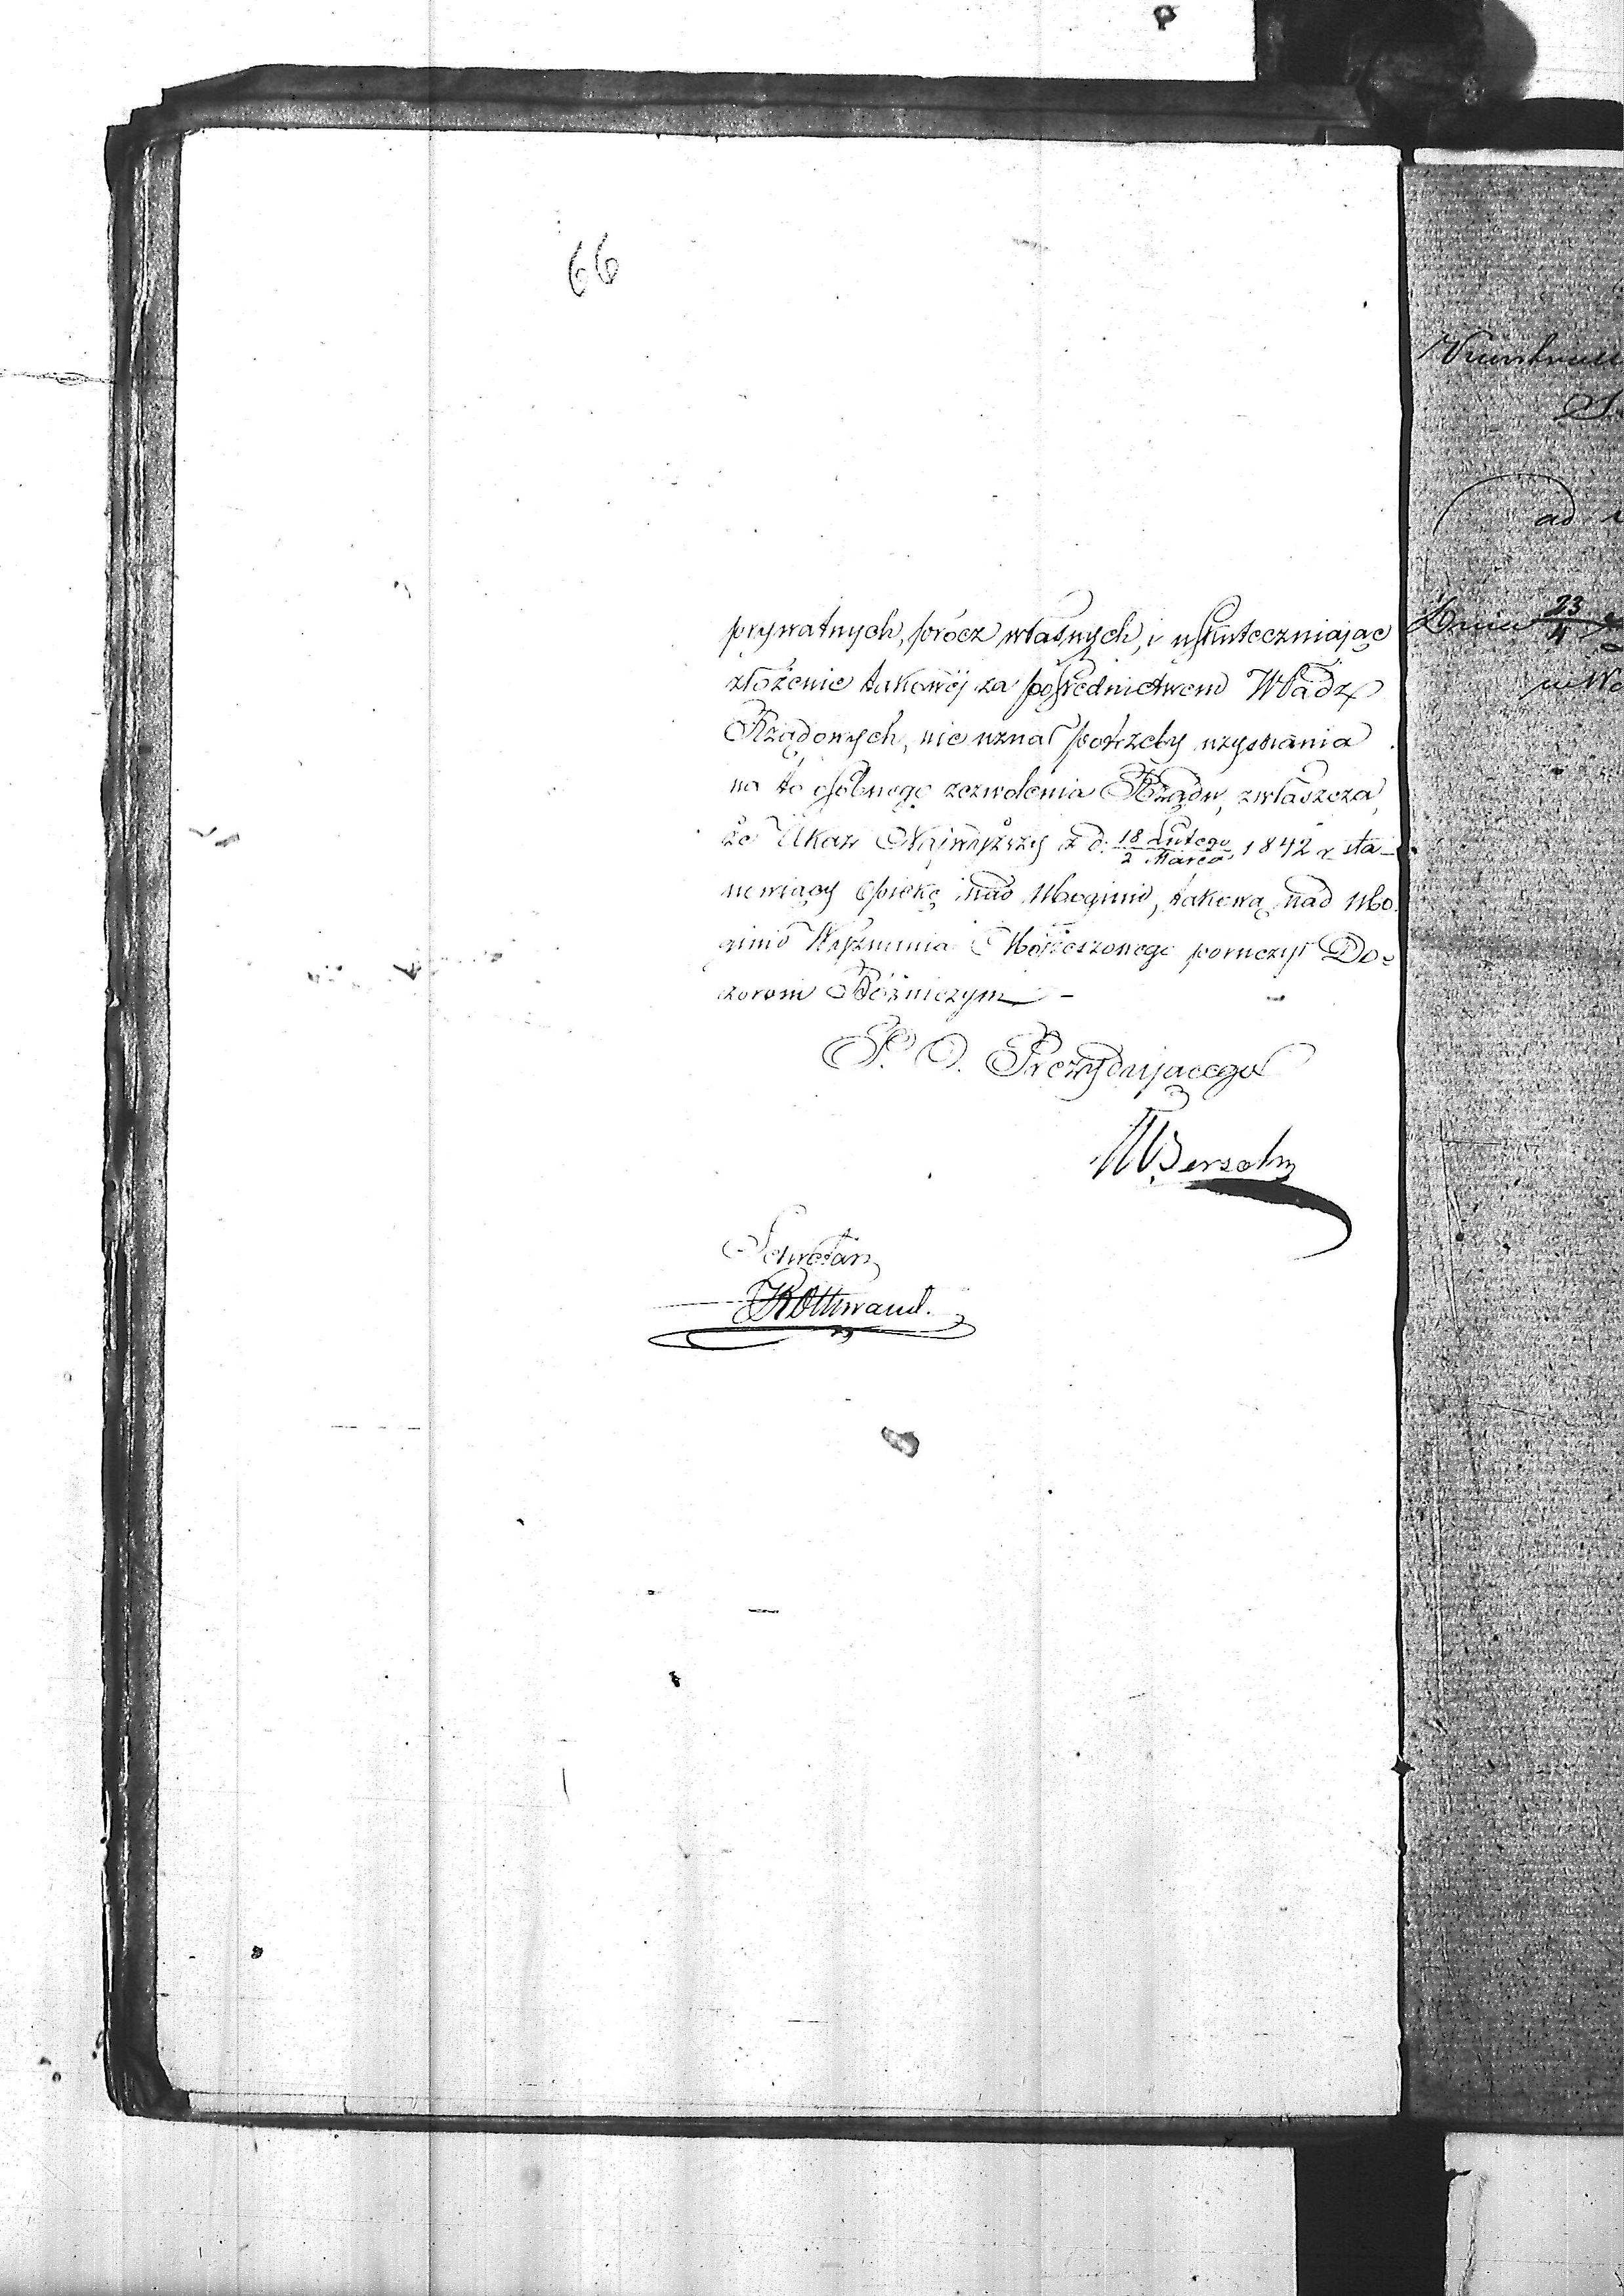 66
prywatnych, prócz własnych, i uskuteczniając
złożenie takowéj za pośrednictwem Władz
Rządowych, nie uznał potrzeby uzyskania
na to osobnego zezwolenia Rządu, zwłaszcza,
że Ukaz Najwyższy z d. 18 Lutego / 2 Marca 1842 r sta-
nowiący Opiekę nad Ubogimi, takową nad Ubo-
gimi Wyznania Mojżeszowego poruczył Do-
zorom Bóżniczym -
P. O. Prezydującego
M Bersohn
Sekretarz
Rothwand.
ad
Dnia 23/4